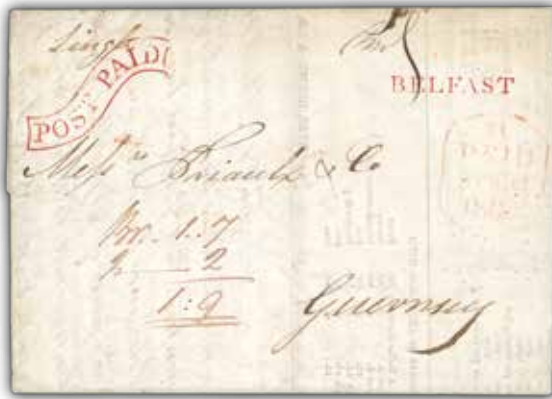 Single
POST PAID
BELFAST
Messrs Priaulx & Co
Br. 1:7
2
1:9
Guernsey